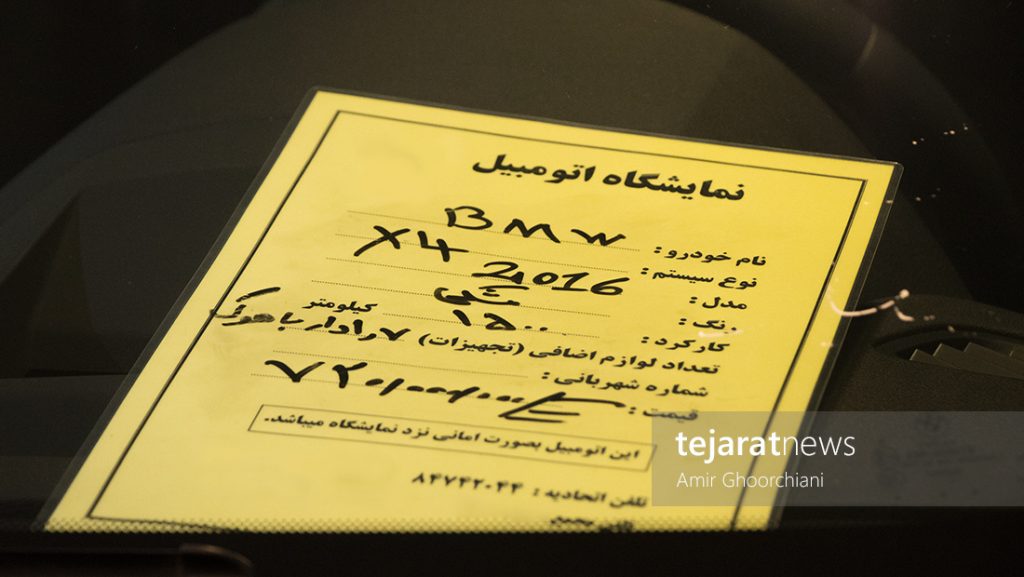 نمایشگاه اتومبیل
نام خودرو : BMW
نوع سیستم : X4
مدل : 2016
رنگ : مشکی
کارکرد : ۱۵۰۰ کیلومتر
تعداد لوازم اضافی (تجهیزات)
شماره شهربانی :
قیمت : ۷۲۰/۰۰۰/۰۰۰
این اتومبیل بصورت امانی نزد نمایشگاه میباشد.
تلفن اتحادیه : ۸۴۷۴۲۰۴۴
tejaratnews
Amir Ghoorchiani